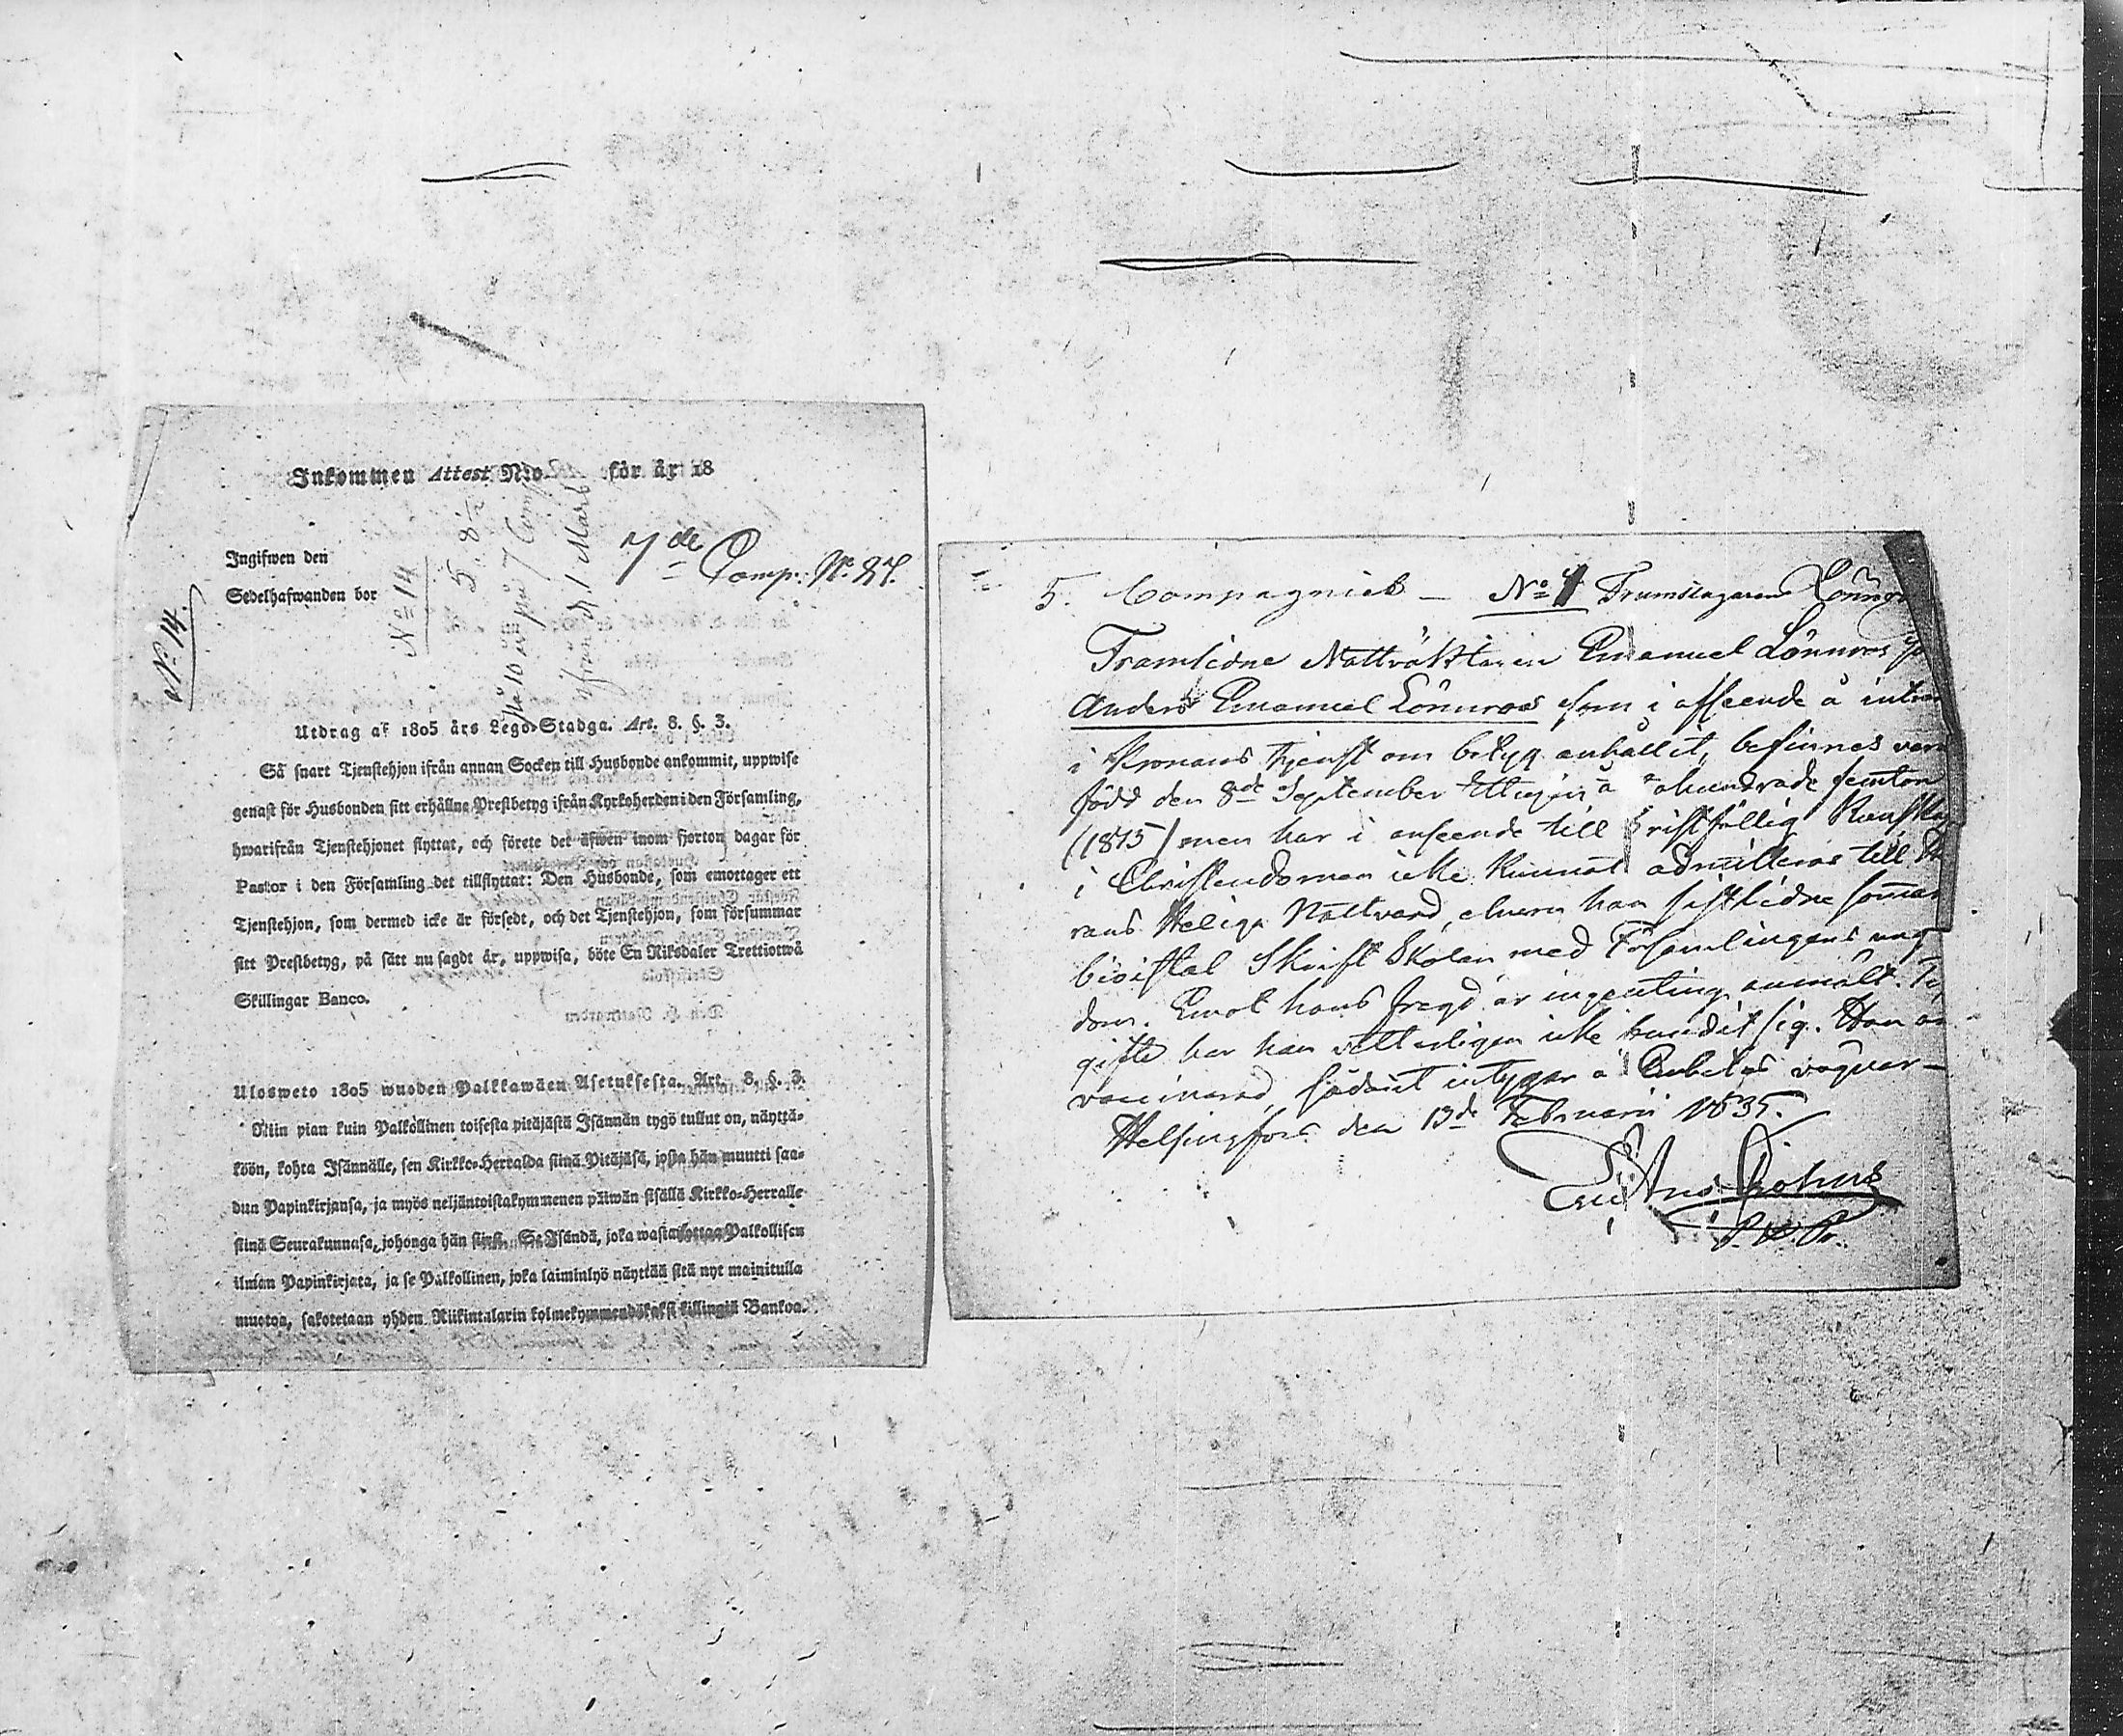 Inkommen Attest No. för år 18
Ingifwen den
Sedelhafwanden bor
7de Comp: No 87.
No 14
5. 8
No 14.
Utdrag af 1805 års Lego-Stadga. Art. 8. §. 3.
Så snart Tjenstehjon ifrån annan Socken till Husbonde ankommit, uppwise
genast för Husbonden sitt erhållne Prestbetyg ifrån Kyrkoherden i den Församling,
hwarifrån Tjenstehjonet flyttat, och förete det äfwen inom fjorton dagar för
Pastor i den Församling det tillflyttat: Den Husbonde, som emottager ett
Tjenstehjon, som dermed icke är försedt, och det Tjenstehjon, som försummar
sitt Prestbetyg, på sätt nu sagdt är, uppwisa, böte En Riksdaler Trettiotwå
Skillingar Banco.
Ulosweto 1805 wuoden Palkkawäen Asetuksesta. Art. 8. §. 3.
Niin pian kuin Palkollinen toisesta pitäjästä Isännän tygö tullut on, näyttä-
köön, kohta Isännälle, sen Kirkko-Herralda siinä Pitäjäsä, josta hän muutti saa-
dun Papinkirjansa, ja myös neljäntoistakymmenen päiwän sisällä Kirkko-Herralle
siinä Seurakunnasa, johonga hän siirsi. Se Isändä, joka wastaottaa Palkollisen
ilman Papinkirjata, ja se Palkollinen, joka laiminlyö näyttää sitä nyt mainitulla
muotoa, sakotetaan yhden Riikintalarin kolmekymmendäkaksi killingiä Bankoa.
5. Compagniet – No 1 Trumslagaren
Framlidne Nattväktaren Emanuel Lönnroos
Anders Emanuel Lönnroos som i afseende å
i Kronans tjenst om betyg anhållit, befinnes
född den 8de September femton
(1815) men har i anseende till Kunskap
i Christendomen icke kunnat admitteras till
rans Heliga Nattvard, ehuru han sistlidne
bivistat Skrift Skolan med Församlingens
dom. Emot hans fregd är ingenting anmält.
gifte har han vetterligen icke bundit sig. Han
vaccinerad, sådant intygar
Helsingfors den 13de Februarii 1835.